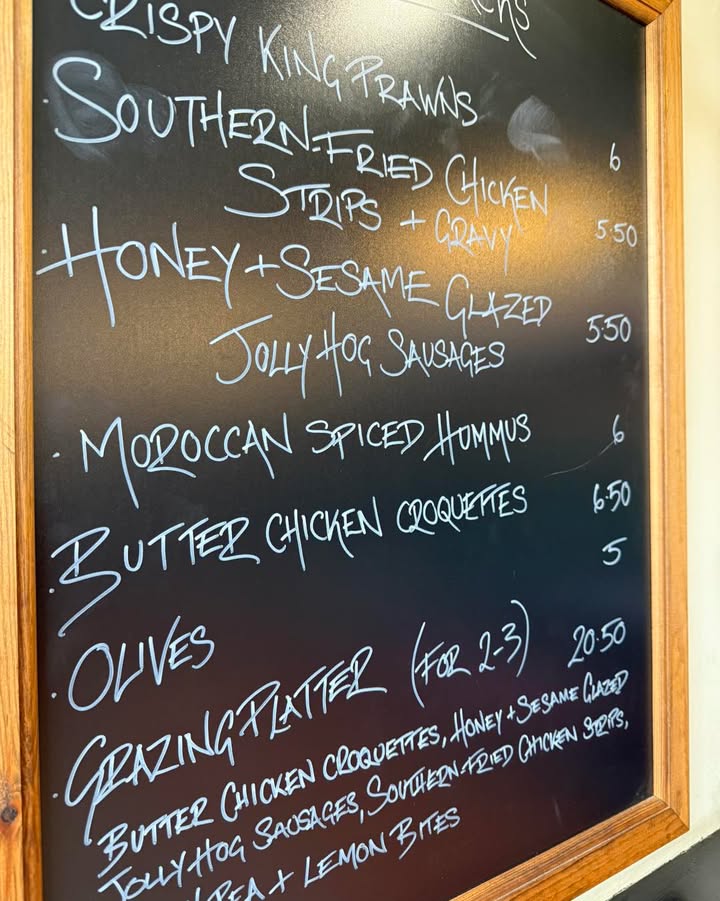 CRISPY KING PRAWNS
· SOUTHERN-FRIED CHICKEN 6
STRIPS + GRAVY 5.50
· HONEY + SESAME GLAZED
JOLLY HOG SAUSAGES 5.50
· MOROCCAN SPICED HUMMUS 6
· BUTTER CHICKEN CROQUETTES 6.50
· OLIVES 5
· GRAZING PLATTER (FOR 2-3) 20.50
BUTTER CHICKEN CROQUETTES, HONEY + SESAME GLAZED
JOLLY HOG SAUSAGES, SOUTHERN-FRIED CHICKEN STRIPS,
+ LEMON BITES